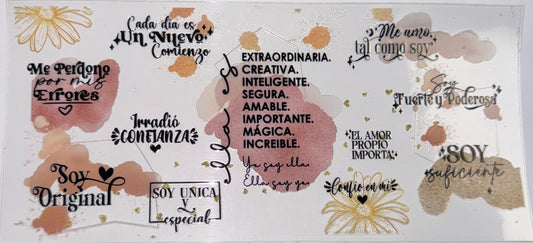 Cada dia es
Un Nuevo
Comienzo
Me Perdono
por mis
Errores
Irradió
CONFIANZA
Soy
Original
SOY UNICA
Y
especial
ella es
EXTRAORDINARIA.
CREATIVA.
INTELIGENTE.
SEGURA.
AMABLE.
IMPORTANTE.
MÁGICA.
INCREIBLE.
Yo soy ella
Ella soy yo
Me amo,
tal como soy
Soy
Fuerte y Poderosa
EL AMOR
PROPIO
IMPORTA
Confio en mi
SOY
suficiente